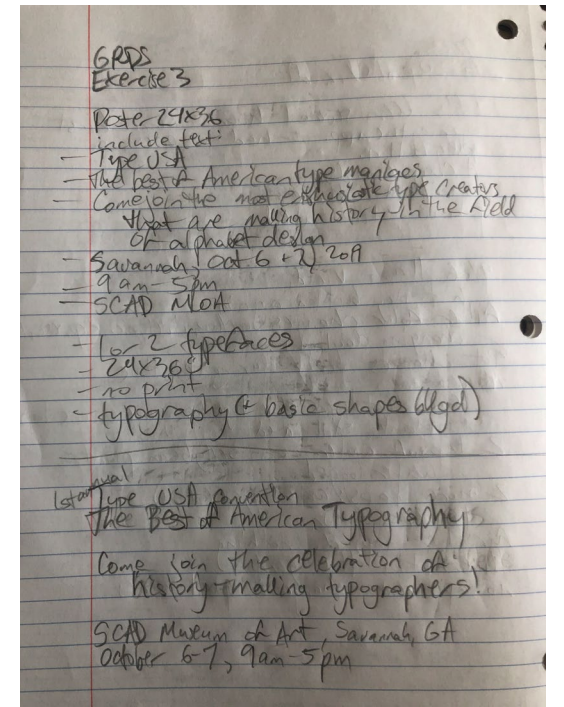 GRDS
Exercise 3
Poster 24x36
include text:
- Type USA
- The best of American type maniacs
- Come join the most enthusiastic type creators
that are making history in the field
of alphabet design
- Savannah, oct 6 + 7, 2019
- 9 am - 5pm
- SCAD MOA
- 1 or 2 typefaces
- 24x36
- no print
- typography (+ basic shapes bkgd)
1st annual
Type USA convention
The Best of American Typography
Come join the celebration of
history-making typographers!
SCAD Museum of Art, Savannah, GA
October 6-7, 9am-5pm